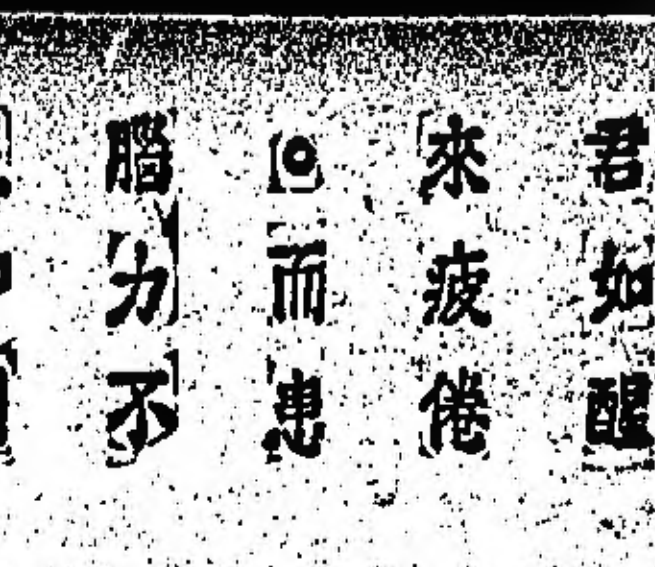 君如醒
來疲倦
◎而患
腦力不